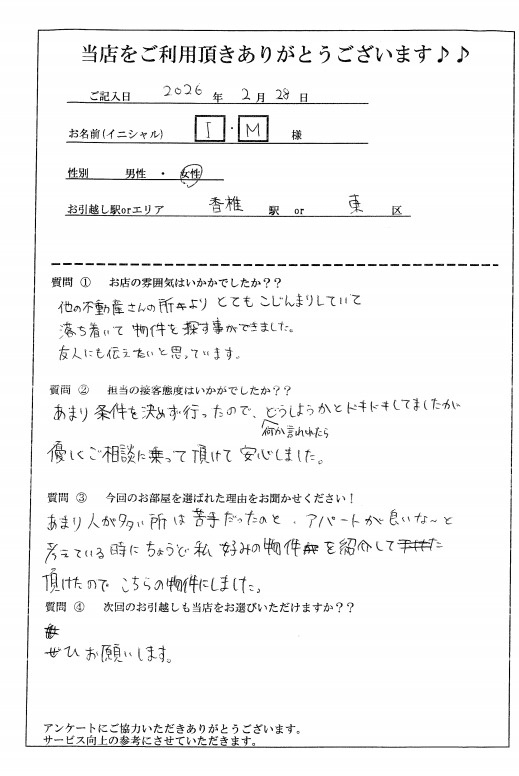 当店をご利用頂きありがとうございます♪♪
ご記入日 2026 年 2 月 28 日
お名前(イニシャル) I ・ M 様
性別 男性 ・ 女性
お引越し駅orエリア 香椎 駅 or 東 区
質問 ① お店の雰囲気はいかがでしたか？？
他の不動産さんの所より とてもこじんまりしていて
落ち着いて 物件を 探す事ができました。
友人にも伝えたいと思っています。
質問 ② 担当の接客態度はいかがでしたか？？
あまり 条件を決めず行ったので、どうしようかとドキドキしてましたが
何か言われたら
優しくご相談に乗って頂けて 安心しました。
質問 ③ 今回のお部屋を選ばれた理由をお聞かせください！
あまり人が多い所は苦手だったのと、アパートが良いな〜と
考えている時にちょうど私 好みの物件を紹介して
頂けたので こちらの物件にしました。
質問 ④ 次回のお引越しも当店をお選びいただけますか？？
ぜひ お願いします。
アンケートにご協力いただきありがとうございます。
サービス向上の参考にさせていただきます。